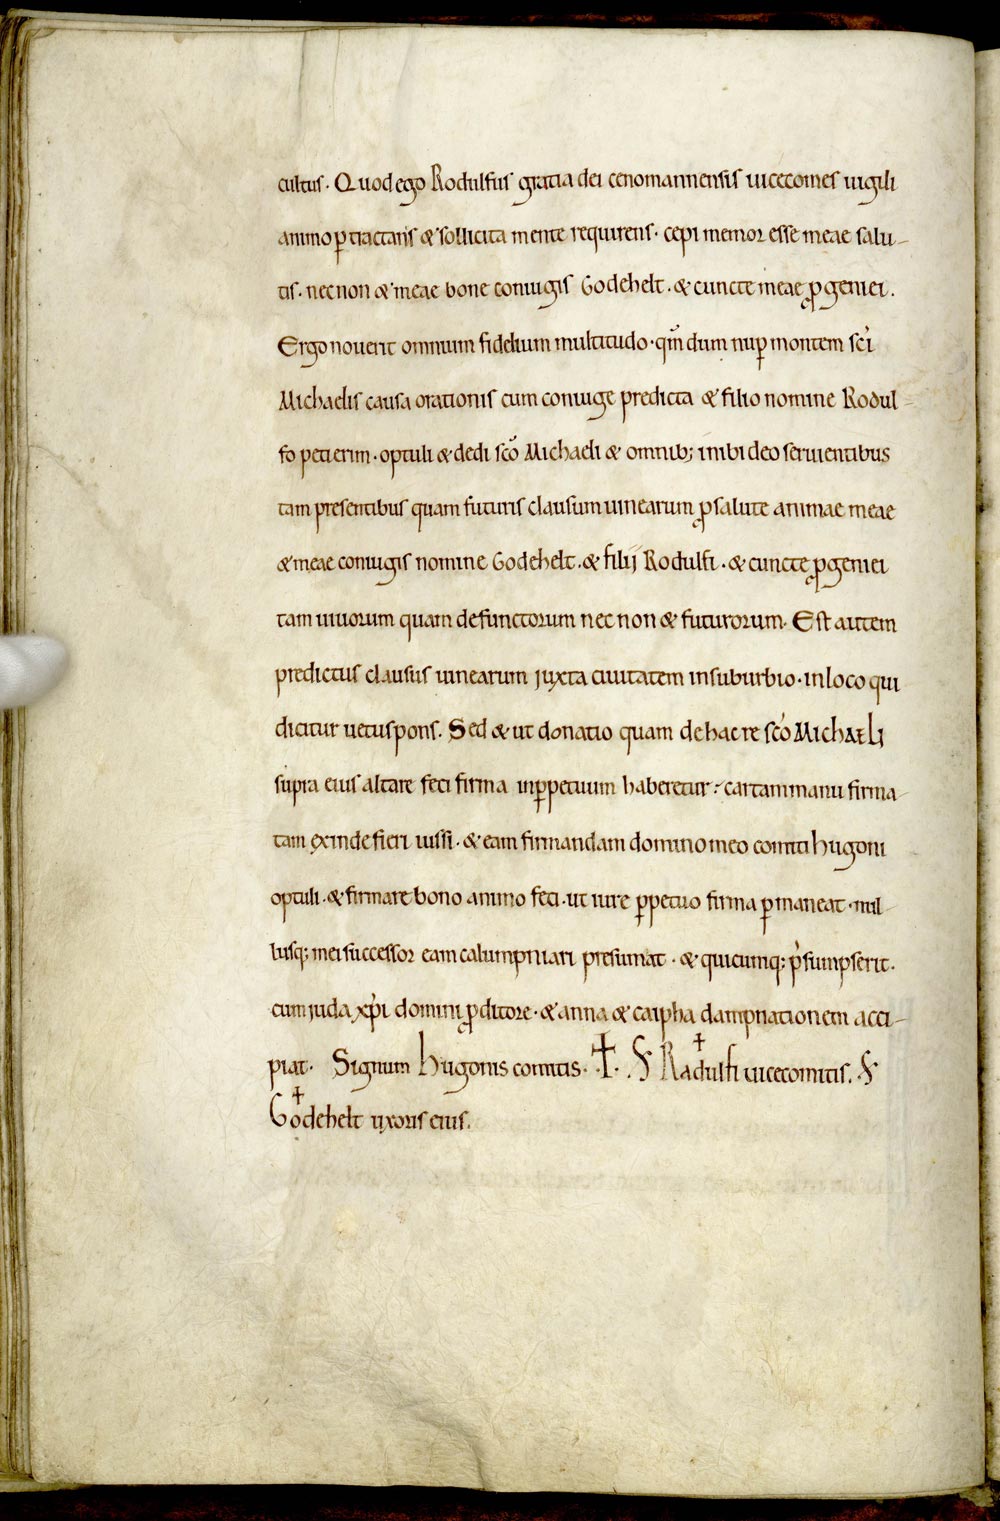 cultus. Quod ego Rodulfus gratia dei cenomannensis uicecomes uigili
animo ꝑtractans & sollicita mente requirens. cepi memor esse meae salu-
tis. necnon & meae bone coniugis Godehelt. & cuncte meae ꝓgeniei.
Ergo nouerit omnium fidelium multitudo. qm̄ dum nuꝑ montem sc̄i
Michaelis causa orationis cum coniuge predicta & filio nomine Rodul-
fo petierim. optuli & dedi sc̄o Michaeli & omnib; inibi deo seruientibus
tam presentibus quam futuris clausum uinearum ꝓ salute animae meae
& meae coniugis nomine Godehelt. & filij Rodulfi. & cuncte ꝓgeniei
tam uiuorum quam defunctorum nec non & futurorum. Est autem
predictus clausus uinearum juxta ciuitatem in suburbio. in loco qui
dicitur uetus pons. Sed & ut donatio quam de hac re sc̄o Michaeli
supra eius altare feci firma inꝑpetuum haberetur: cartam manu firma-
tam exinde fieri iussi. & eam firmandam domino meo comiti hugoni
optuli. & firmare bono animo feci. ut iure ꝑpetuo firma ꝑmaneat. nul-
lusq; mei successor eam calumpniari presumat. & quicumq; p̄sumpserit.
cum juda xp̄i domini ꝓditore. & anna & caipha dampnationem acci-
piat. Signum Hugonis comitis. ✝. S Radulfi uicecomitis. S
Godehelt uxoris eius.